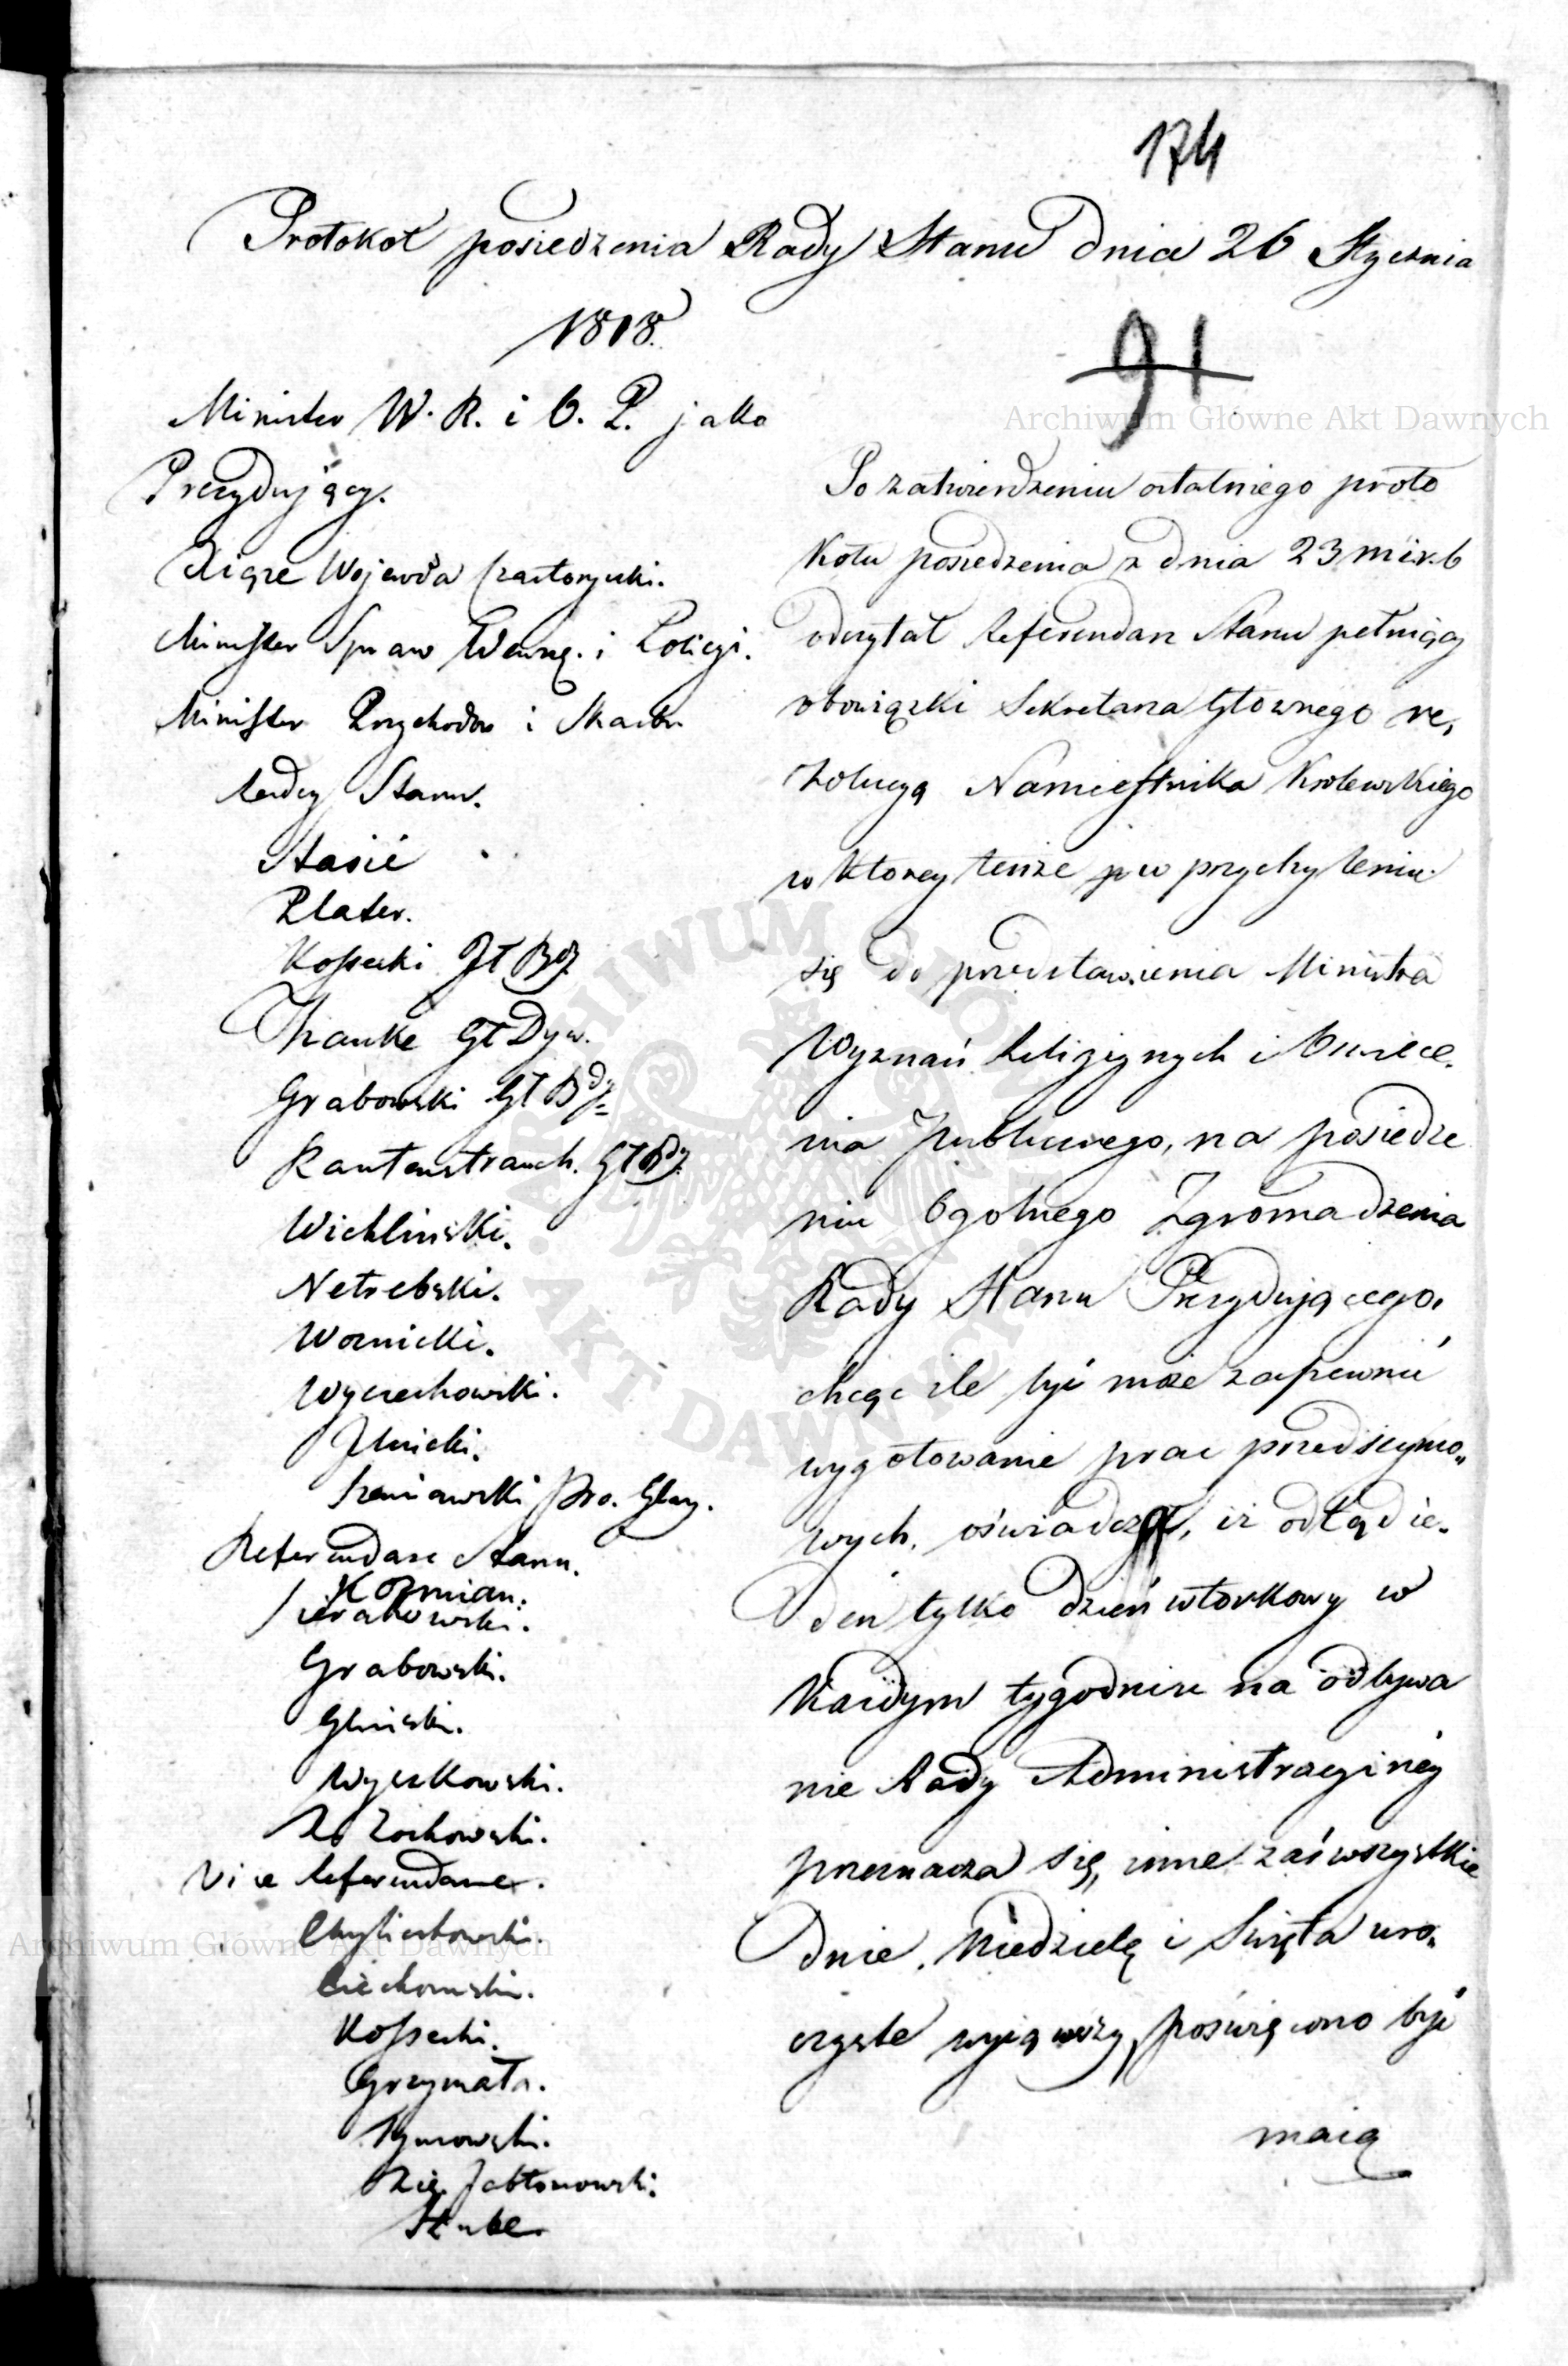 174
Protokoł posiedzenia Rady Stanu dnia 26 Stycznia
1818.
91
Minister W. R. i O. P. jako
Prezydujący.
Xiąże Wojewoda Czartoryski.
Minister Spraw Wewnę. i Policyi.
Minister Przychodów i Skarbu
Radcy Stanu.
Stasic
Plater.
Kossecki Jł Bdy
Hauke Gł Dyw.
Grabowski Gł Bdy
Rautenstrauch. Gł Bdy
Wichliński.
Netrebski.
Woznicki.
Wyczechowski.
Jlnicki.
Szaniawski Pro. Glny.
Referendarze Stanu.
Kozmian.
Sierakowski.
Grabowski.
Gliński.
Wyczkowski.
Zochowski.
Vice Referendarze.
Chyliczkowski.
Ciechomski.
Kossecki.
Grzymała.
Tymowski.
Xię. Jabłonowski.
Po zatwierdzeniu ostatniego proto
kołu posiedzenia z dnia 23 m i r. b
odczytał Referendarz Stanu pełniący
obowiązki Sekretarza Głownego re,
zolucyą Namiestnika Krolewskiego
w ktorey tenże po przychyleniu
się do przedstawienia Ministra
Wyznań Religijnych i Oświece.
nia Publicznego, na posiedze
niu Ogolnego Zgromadzenia
Rady Stanu Prezydującego.
chcąc ile być może zapewnić
wygotowanie prac przedseymo„
wych, oświadcza, iż odtąd ie.
den tylko dzień wtorkowy w
każdym tygodniu na odbywa
nie Rady Administracyiney
przeznacza się, inne zaś wszystkie
dnie, Niedzielę i Swięta uro„
czyste wyiąwszy, poświęcone być
maią
Archiwum Główne Akt Dawnych
Archiwum Główne Akt Dawnych
ARCHIWUM GŁÓWNE · AKT DAWNYCH ·